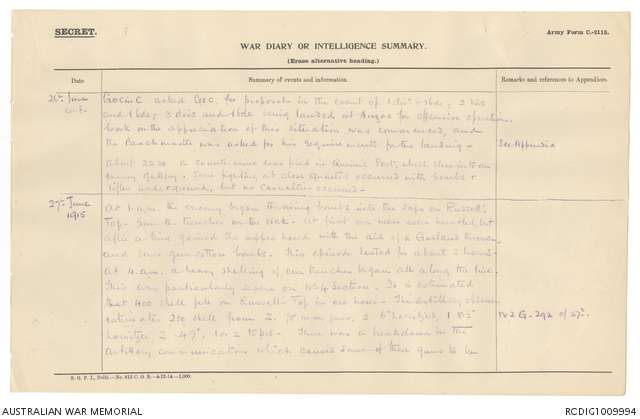 SECRET.
Army Form C.-2118.
WAR DIARY OR INTELLIGENCE SUMMARY.
(Erase alternative heading.)
Date.
Summary of events and information.
Remarks and references to Appendices.
26th June
GOCinC asked GOC for proposals in the event of 1 divn + 1 bde; 2 divs
and 1 bde; 3 divs and 1 bde being landed at Anzac for offensive operations
work on the appreciation of this situation was commenced, and
the Beachmaster was asked for his requirements for the landing.
See Appendix
About 2230 a countermine was fired in Quinn's Post, which blew into an
enemy gallery. Some fighting at close quarters occurred with bombs &
rifles underground, but no casualties occurred.
27th June
1915
At 1 a.m. the enemy began throwing bombs into the Saps on Russell's
Top. from the trenches on the At first our men were but
after a time gained the upper hand with the aid of a Garland Mortar
and some bombs. This episode lasted for about 2 hours.
At 4 a.m. a heavy shelling of our trenches began all along the line.
This was particularly severe on No 4 Section. It is estimated
that 400 shell fell on Russell's Top in one hour. The Artillery
estimates 250 shell from 2. 75 m.m. guns, 2 6" howitzers, 1 8.2"
howitzer 2 4.7", 1 or 2 15 pdr. There was a breakdown in the
IV 2 G.292 of 27th.
artillery communications which caused some of these guns to be
S. G. P. I., Delhi—No. 812 C. G. S.—4-12-14—1,000.
AUSTRALIAN WAR MEMORIAL
RCDIG1009994